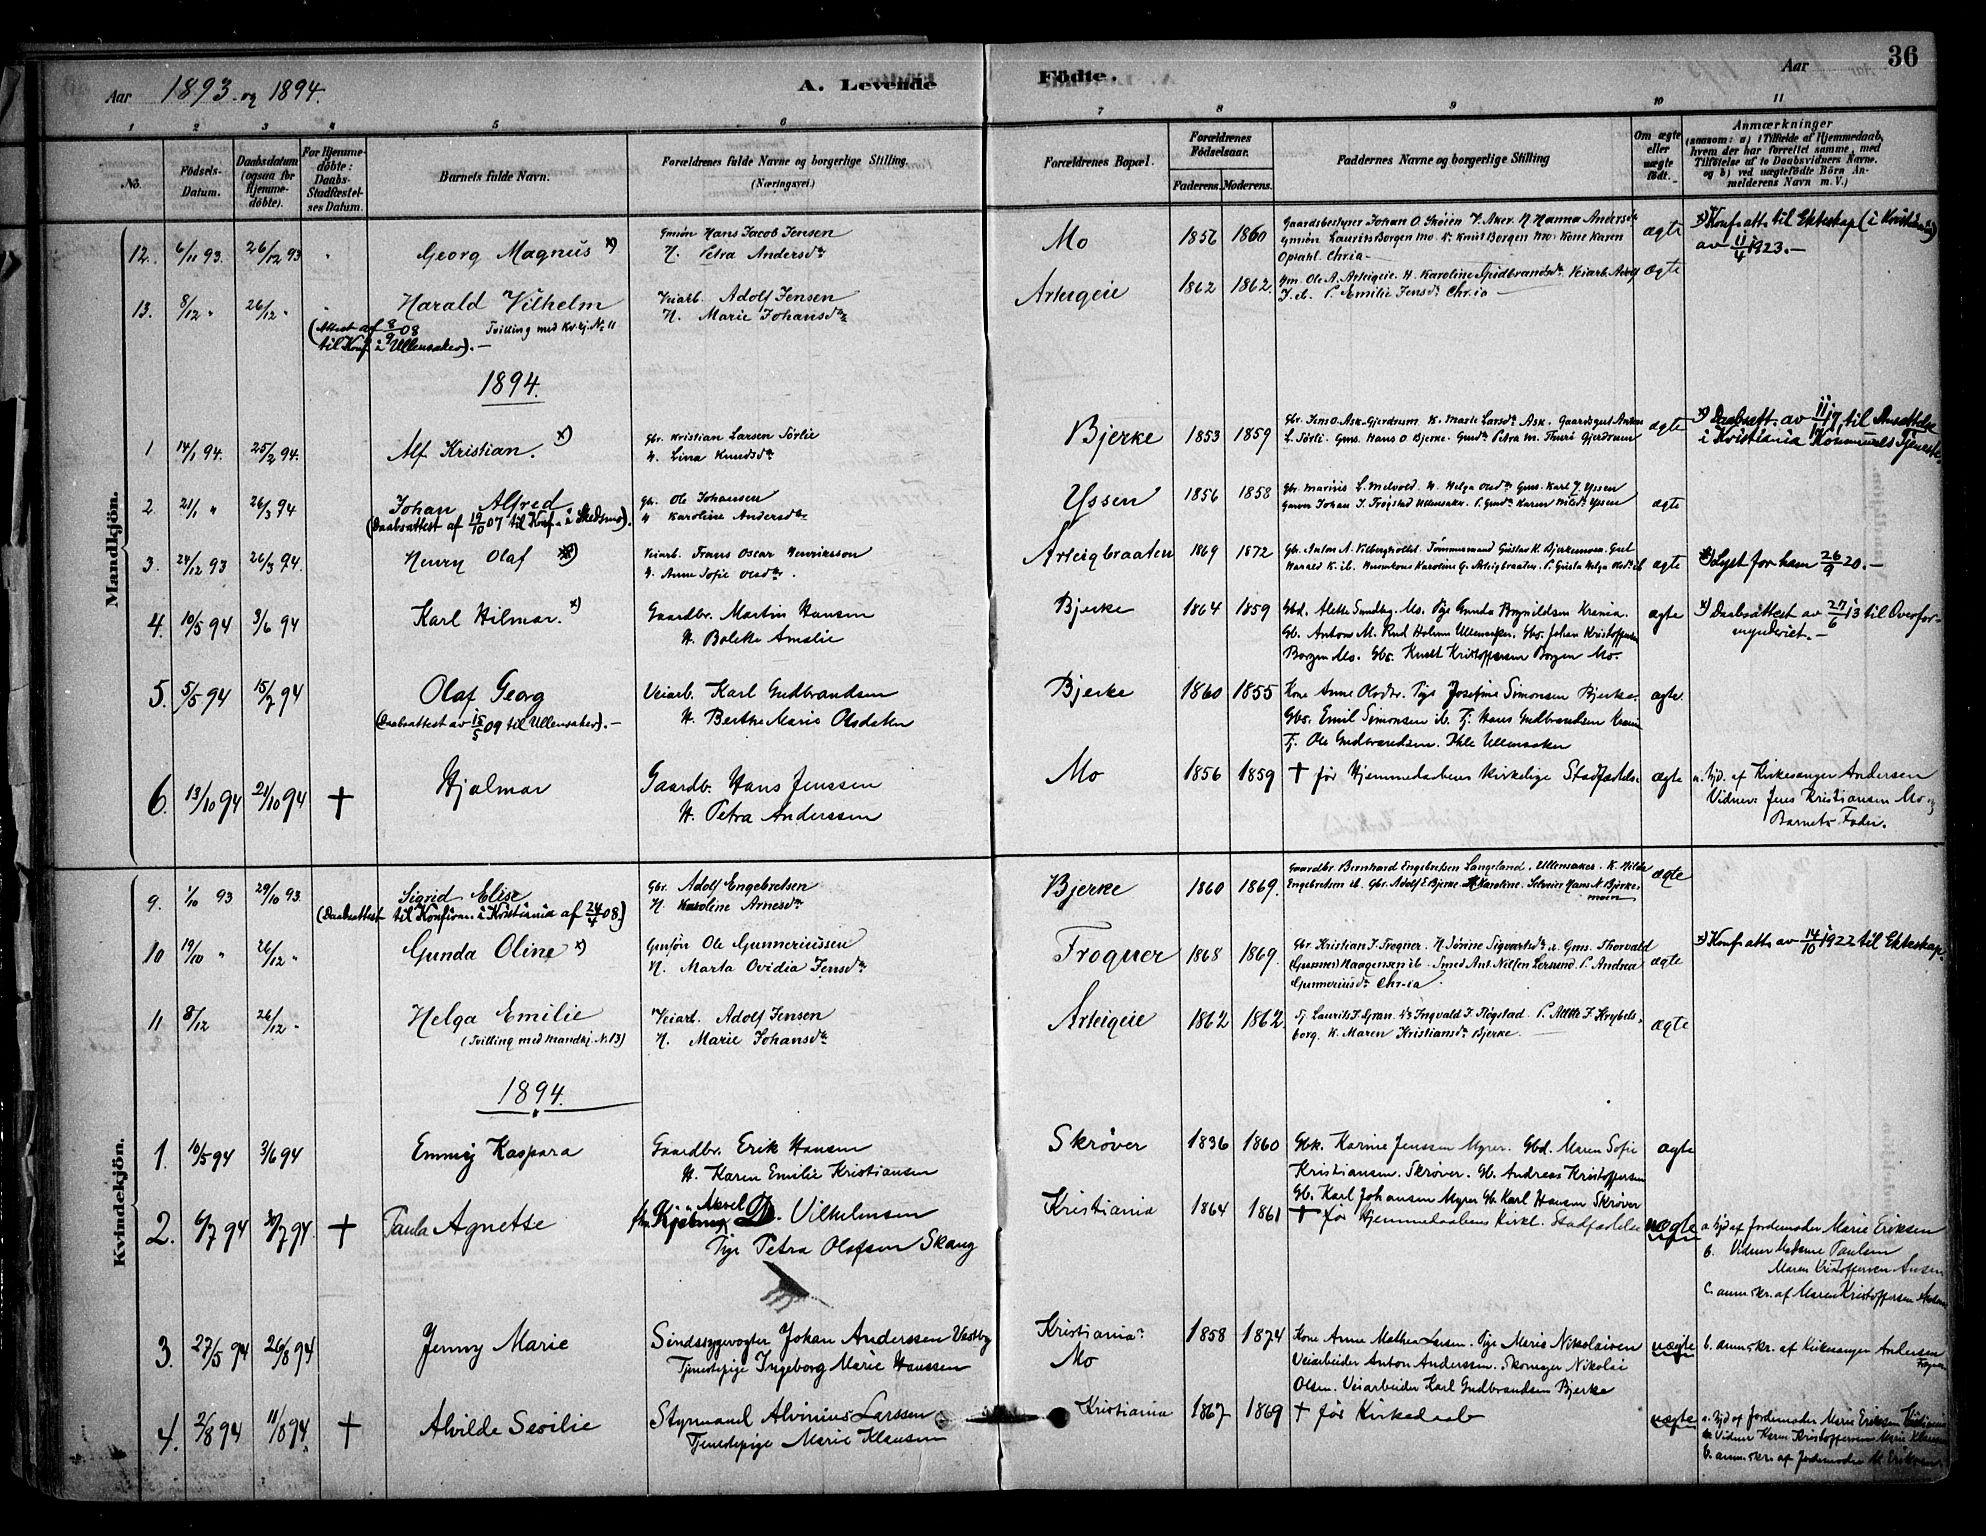 36
Aar 1893 og 1894.
A. Levende Födte.
Aar
1 2 3 4 5 6 7 8 9 10 11
No.
Födsels-Datum.
Daabsdatum (ogsaa for Hjemmedöbte).
For Hjemmedöbte: Daabs-Stadfæstelses Datum.
Barnets fulde Navn.
Forældrenes fulde Navne og borgerlige Stilling.
(Næringsvei.)
Forældrenes Bopæl.
Forældrenes Födselsaar.
Faderens. Moderens.
Faddernes Navne og borgerlige Stilling
Om ægte eller uægte födt.
Anmærkninger
(saasom: a) i Tilfælde af Hjemmedaab, hvem der har forrettet samme, med Tilföielse af to Daabsvidners Navne. og b) ved uægtefödte Börn Anmelderens Navn m. V.)
Mandkjön.
12. 6/11 93. 26/12 93 Georg Magnus x) Gmsön Hans Jacob Jensen Mo 1856 1860 Gaardsbestyrer Johan O. Skoien V. Aker. H. Hanna Andersdr ægte x) Konf. atts. til Ekteskap (i Kristiania)
H. Petra Andersdr Gmsön Laurits Borgen Mo. Kone Karen av 11/4 1923.-
Opsahl Chria
13. 8/12 " 26/12 " Harald Vilhelm Veiarb. Adolf Jensen Arteigeie 1862 1862. Gm. Ole A. Arteigeie. H. Karoline Veiarb. Adolf ægte
(Attest af 8/9 08 Tvilling med Kv.kj. No 11 H. Marie Johansdr J. ib. P. Emilie Jensdr Chr.ia
til Konf. i Ullensaker).-
1894.
1 14/1 94. 25/2 94. Alf Kristian. x) Gbr. Kristian Larsen Sörlie Bjerke 1853 1859 Gbr. Jens O. Ask Gjerdrum K. Marie Larsdr Ask. ægte x) Daabsatt. av til Ansættelse
H. Lina Knudsdr L. Sörli. Gms. Hans O Bjerke. Petra M. Gjerdrum i Kristiania Kommunes Tjeneste.
2. 21/1 " 26/3 94 Johan Alfred Gbr. Ole Johansen Yssen 1856 1858 Gbr. Marinis L. Melvold. H. Helga Olsdr Gms. Karl J. Yssen ægte
(Daabsattest af 19/10 07 til Konf. i Skedsmo). H. Karoline Andersdr Johan J. Frogstad Ullensaker. Karen Yssen
3. 24/12 93 26/3 94. Henry Olaf x) Veiarb. Frans Oscar Henriksson Arteigbraaten 1869 1872 Gbr. Anton A. Tömmermand Gustav K. Bjerkemoen. ægte x) Lyst for ham 26/9 20.-
H. Anne Sofie Olsdr. Harald K. ib. Huusmkone Karoline G. Arteigbraaten.
4. 10/5 94 3/6 94 Karl Hilmar. x) Gaardbr. Martin Hansen Bjerke 1864 1859 Gbd. Alette Sundby. Mo. Pige Gunda Brynildsen Krania. ægte x) Daabsattest av 27/6 13 til Overfor-
H. Bolette Amalie Gb. Anton M. Rud Holum Ullensaker. Gbs. Johan Kristoffersen mynderiet.-
Borgen Mo. Gbs. Knut Kristoffersen Borgen Mo.
5. 5/5 94 15/7 94 Olaf Georg Veiarb. Karl Gudbrandsen Bjerke 1860 1855 Kone Anne Olsdtr. Pige Josefine Simonsen Bjerke. ægte.
(Daabsattest av 15/5 09 til Ullensaker).- H. Berthe Marie Olsdatter Gbs. Emil Simonsen ib. Tj. Hans Gudbrandsen Krania
Tj. Ole Gudbrandsen. Ihle Ullensaker
6. 13/10 94 21/10 94 + Hjalmar Gaardb. Hans Jenssen Mo 1856 1859 + før Hjemmedaabens kirkelige Stadfæstelse ægte a. hjd. af Kirkesanger Andersen
H. Petra Anderssen Vidner: Jens Kristiansen Mo og
Barnets Fader.
Kvindekjön.
9. 1/10 93 29/10 93. Sigrid Elise Gbr. Adolf Engebretsen Bjerke 1860 1869. Gaardbr. Bernhard Engebretsen Langeland. Ullensaker. K. Hilda ægte
(Daabsattest til Konfirm. i Kristiania af 24/4 08.) H. Karoline Arnesdr Engebretsen ib. Gbr. Adolf E Bjerke. H. Karoline. Selveier Hans N. Bjerke-
moen
10 19/10 " 26/12 " Gunda Oline x) Gmsön Ole Gunneriussen Frogner 1868 1869. Gbr. Kristian J. Frogner. H. Sörine Sigvartsdr ib. Gms. Thorvald ægte x) Konf. atts. av 14/10 1922 til Ekteskap.
H. Marta Ovidia Jensdr (Gunnes) Haagensen ib. Smed Ant. Nilsen Lersund. P. Andrea
Gunneriusdr Chr.ia
11 8/12 26/12 " Helga Emilie Veiarb. Adolf Jensen Arteigeie 1862 1862. Tj. Laurits J. Gran. Ingvald J. Flögstad. P. Alette J. Krybels- ægte
(Tvilling med Mandkj. N. 13) H. Marie Johansdr borg. K. Maren Kristiansdr Bjerke.
1894.
1. 10/5 94 3/6 94 Emmy Kaspara Gaardbr. Erik Hansen Skrøver 1836 1860 Gbk. Karine Jenssen Myrer. Gbd. Maren Sofie ægte
H. Karen Emilie Kristiansen Kristiansen. Skrøver. Gb. Andreas Kristoffersen
Gb. Karl Johansen Myrer Gb. Karl Hansen Skrøver
2. 6/7 94 94. + Paula Agnette Axel D. Vilhelmsen Kristiania 1864 1861 + før Hjemmedaabens Kirkl. Stadfæstelse uægte a. hjd af Jordemoder Marie Eriksen
Pige Petra Olafsen Skaug b. Vidner Madame Paulsen
Maren Kristoffersen
c. anm. skr. af Maren Kristoffersen
3. 27/5 94 26/8 94 Jenny Marie Sindssygevogter Johan Anderssen Vestby Kristiania 1858 1874 Kone Anne Mathea Larsen. Pige Marie Nikolaisen uægte b. anm. skr. af Kirkesanger Andersen
Tjenestepige Ingeborg Marie Hanssen Mo Veiarbeider Anton Anderssen. Skomager Nikolai Frogner
Olsen. Veiarbeider Karl Gudbrandsen Bjerke
4. 2/8 94 11/8 94. + Alvilde Sevilie Styrmand Alvinius Larssen Kristiania 1867 1869 + før Kirkedaab uægte a. hjd af Jordemoder Marie Eriksen
Tjenestepige Marie Klausen Vidner Karen Kristoffersen Marie Klausen
b. anm. skr. af Jordemoder M. Eriksen